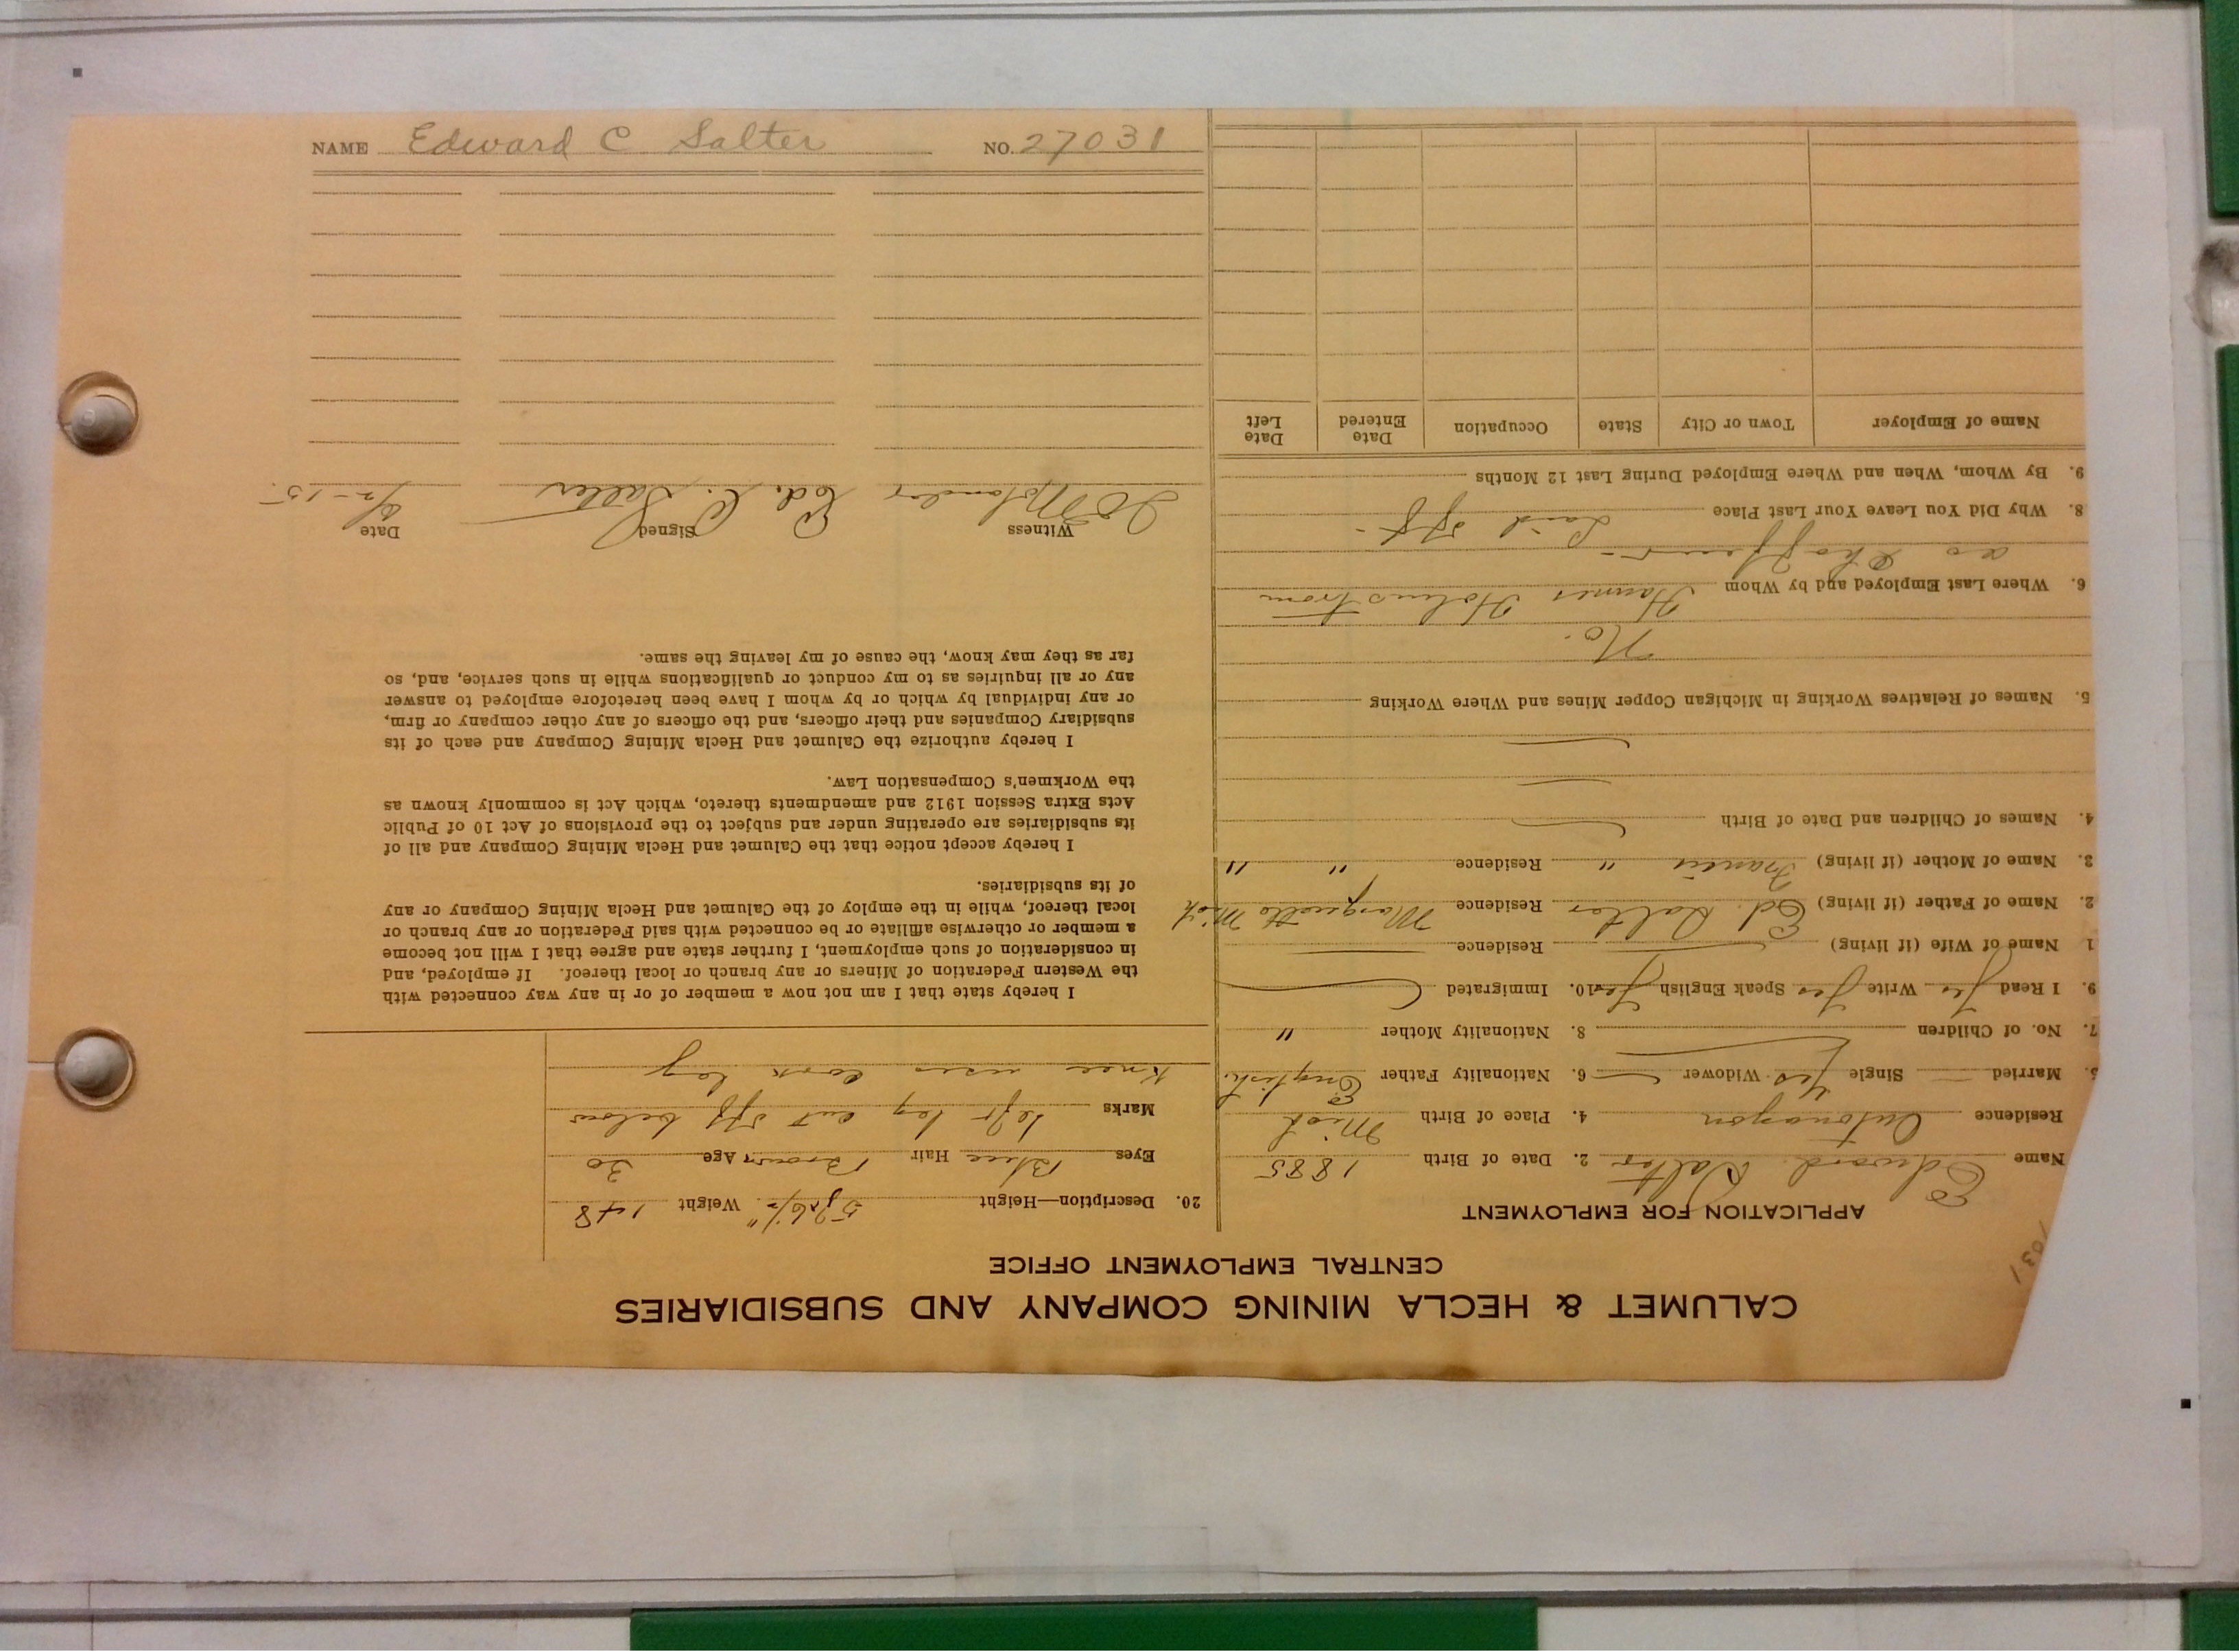 NAME Edward C Salter NO. 27031
CALUMET & HECLA MINING COMPANY AND SUBSIDIARIES
CENTRAL EMPLOYMENT OFFICE
APPLICATION FOR EMPLOYMENT
Name Edward Salter 2. Date of Birth 1885
Residence Ontonagon 4. Place of Birth Mich
5. Married Single Yes Widower 6. Nationality Father English
7. No. of Children 8. Nationality Mother "
9. I Read Yes Write Yes Speak English Yes 10. Immigrated
1 Name of Wife (if living) Residence
2. Name of Father (if living) Ed. Salter Residence Marquette Mich
3. Name of Mother (if living) Francis " Residence " "
4. Names of Children and Date of Birth
5. Names of Relatives Working in Michigan Copper Mines and Where Working
No.
6. Where Last Employed and by Whom Hannes Holmstrom
as
8. Why Did You Leave Your Last Place Laid off -
9. By Whom, When and Where Employed During Last 12 Months
Name of Employer Town or City State Occupation Date Entered Date Left
20. Description—Height 5f 6½" Weight 148
Eyes Blue Hair Brown Age 30
Marks left leg cut off below
Knee uses cork leg
I hereby state that I am not now a member of or in any way connected with
the Western Federation of Miners or any branch or local thereof. If employed, and
in consideration of such employment, I further state and agree that I will not become
a member or otherwise affiliate or be connected with said Federation or any branch or
local thereof, while in the employ of the Calumet and Hecla Mining Company or any
of its subsidiaries.
I hereby accept notice that the Calumet and Hecla Mining Company and all of
its subsidiaries are operating under and subject to the provisions of Act 10 of Public
Acts Extra Session 1912 and amendments thereto, which Act is commonly known as
the Workmen's Compensation Law.
I hereby authorize the Calumet and Hecla Mining Company and each of its
subsidiary Companies and their officers, and the officers of any other company or firm,
or any individual by which or by whom I have been heretofore employed to answer
any or all inquiries as to my conduct or qualifications while in such service, and, so
far as they may know, the cause of my leaving the same.
Witness Signed Date
Ed. C. Salter